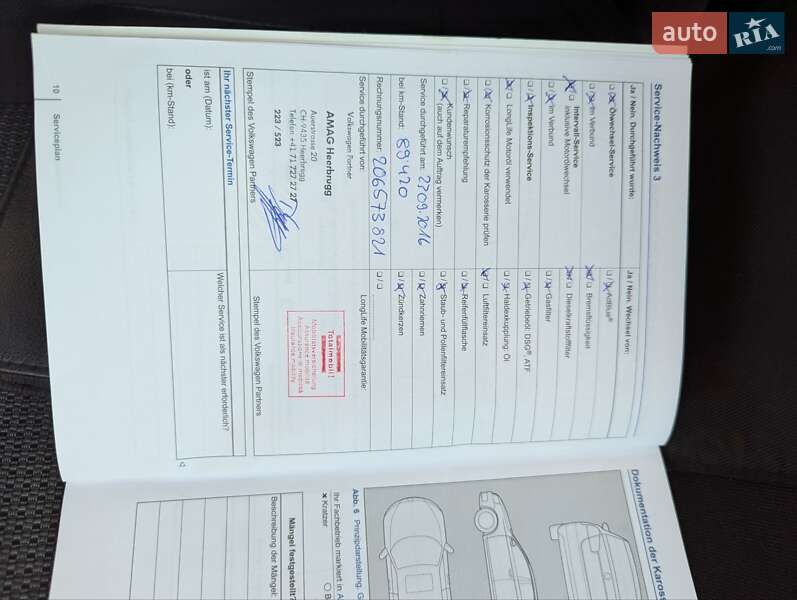 auto RIA .com
Service-Nachweis 3
Ja / Nein. Durchgeführt wurde:
Ölwechsel-Service
Im Verbund
Intervall-Service
inklusive Motorölwechsel
Im Verbund
Inspektions-Service
LongLife Motoröl verwendet
Korrosionsschutz der Karosserie prüfen
Reparaturempfehlung
Kundenwunsch
(auch auf dem Auftrag vermerken)
Service durchgeführt am: 27.09.2016
bei km-Stand: 89420
Rechnungsnummer: 206573821
Service durchgeführt von:
Volkswagen Partner
AMAG Heerbrugg
Auerstrasse 20
CH-9435 Heerbrugg
Telefon +41 71 727 27 27
223 / 523
Stempel des Volkswagen Partners
Ja / Nein. Wechsel von:
AdBlue®
Bremsflüssigkeit
Dieselkraftstofffilter
Gasfilter
Getriebeöl: DSG®, ATF
Haldexkupplung: Öl
Luftfiltereinsatz
Reifenfüllflasche
Staub- und Pollenfiltereinsatz
Zahnriemen
Zündkerzen
LongLife Mobilitätsgarantie:
Totalmobil!
Mobilitätsversicherung
Assurance mobilité
Assicurazione di mobilità
Insurance mobility
Stempel des Volkswagen Partners
Ihr nächster Service-Termin
ist am (Datum):
oder
bei (km-Stand):
Welcher Service ist als nächster erforderlich?
10 Serviceplan
Dokumentation der Kaross
Abb. 6 Prinzipdarstellung. G
Ihr Fachbetrieb markiert in A
× Kratzer
Mängel festgestellt?
Beschreibung der Mängel: